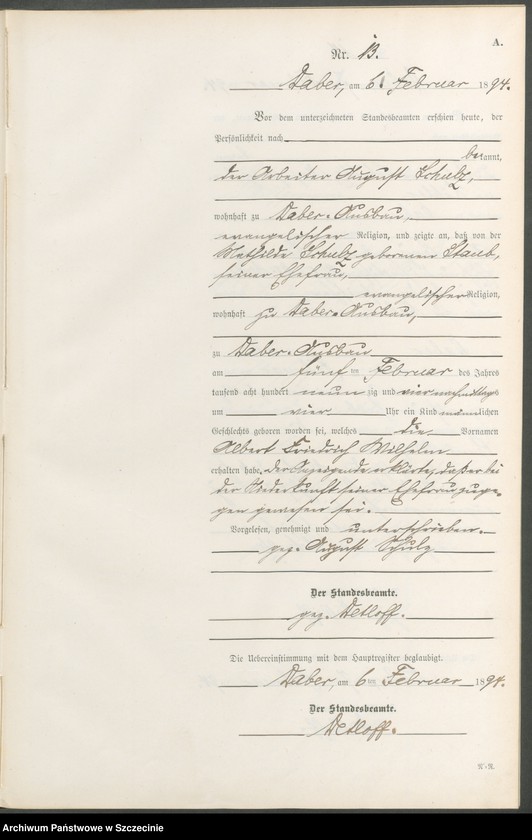 A.
Nr. 13.
Daber, am 6 Februar 1894.
Vor dem unterzeichneten Standesbeamten erschien heute, der
Persönlichkeit nach
bekannt,
der Arbeiter August Schulz,
wohnhaft zu Daber-Ausbau
evangelischer Religion, und zeigte an, daß von der
Mathilde Schulz geborenen Staub,
seiner Ehefrau,
evangelischer Religion,
wohnhaft zu Daber-Ausbau,
zu Daber-Ausbau
am fünften Februar des Jahres
tausend acht hundert neunzig und vier nachmittags
um vier Uhr ein Kind männlichen
Geschlechts geboren worden sei, welches die Vornamen
Albert Friedrich Wilhelm
erhalten habe. Der Anzeigende erklärte, daß er bei
der Niederkunft seiner Ehefrau zuge-
gen gewesen sei.
Vorgelesen, genehmigt und unterschrieben.
gez. August Schulz
Der Standesbeamte.
gez. Detloff.
Die Uebereinstimmung mit dem Hauptregister beglaubigt.
Daber, am 6ten Februar 1894.
Der Standesbeamte.
Detloff.
Archiwum Państwowe w Szczecinie